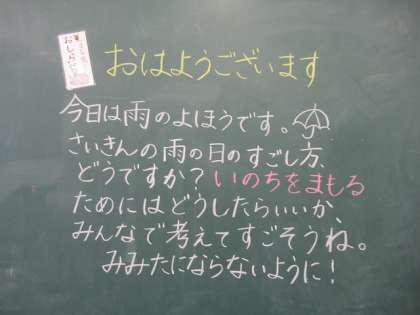 おしらせ
おはようございます
今日は雨のよほうです。
さいきんの雨の日のすごし方、
どうですか？いのちをまもる
ためにはどうしたらいいか、
みんなで考えてすごそうね。
みみたにならないように！